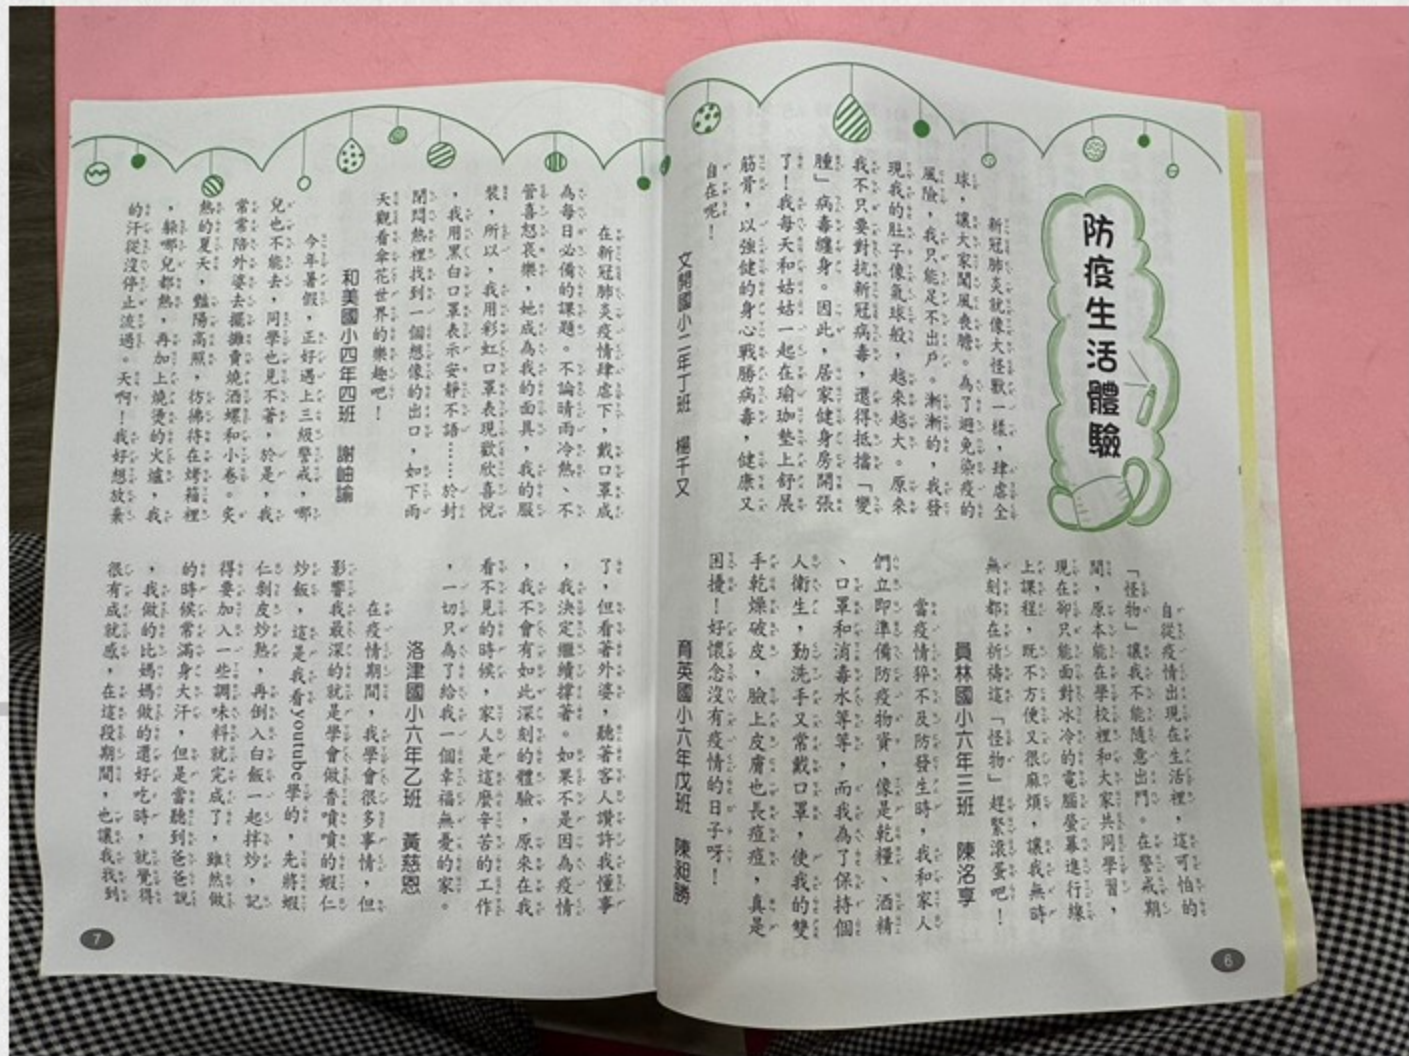 防疫生活體驗
新冠肺炎就像大怪獸一樣，肆虐全
球，讓大家聞風喪膽。為了避免染疫的
風險，我只能足不出戶。漸漸的，我發
現我的肚子像氣球般，越來越大。原來
我不只要對抗新冠病毒，還得抵擋「變
腫」病毒纏身。因此，居家健身房開張
了！我每天和姑姑一起在瑜珈墊上舒展
筋骨，以強健的身心戰勝病毒，健康又
自在呢！
文開國小二年丁班　楊千又
自從疫情出現在生活裡，這可怕的
「怪物」讓我不能隨意出門。在警戒期
間，原本能在學校裡和大家共同學習，
現在卻只能面對冰冷的電腦螢幕進行線
上課程，既不方便又很麻煩，讓我無時
無刻都在祈禱這「怪物」趕緊滾蛋吧！
員林國小六年三班　陳洺享
當疫情猝不及防發生時，我和家人
們立即準備防疫物資，像是乾糧、酒精
、口罩和消毒水等等，而我為了保持個
人衛生，勤洗手又常戴口罩，使我的雙
手乾燥破皮，臉上皮膚也長痘痘，真是
困擾！好懷念沒有疫情的日子呀！
育英國小六年戊班　陳昶勝
6
在新冠肺炎疫情肆虐下，戴口罩成
為每日必備的課題。不論晴雨冷熱、不
管喜怒哀樂，她成為我的面具，我的服
裝，所以，我用彩虹口罩表現歡欣喜悅
，我用黑白口罩表示安靜不語……於封
閉悶熱裡找到一個想像的出口，如下雨
天觀看傘花世界的樂趣吧！
和美國小四年四班　謝岫諭
今年暑假，正好遇上三級警戒，哪
兒也不能去，同學也見不著，於是，我
常常陪外婆去擺攤賣燒酒螺和小卷。炎
熱的夏天，豔陽高照，彷彿待在烤箱裡
，躲哪兒都熱，再加上燒燙的火爐，我
的汗從沒停止流過。天啊！我好想放棄
了，但看著外婆，聽著客人讚許我懂事
，我決定繼續撐著。如果不是因為疫情
，我不會有如此深刻的體驗，原來在我
看不見的時候，家人是這麼辛苦的工作
，一切只為了給我一個幸福無憂的家。
洛津國小六年乙班　黃慈恩
在疫情期間，我學會很多事情，但
影響我最深的就是學會做香噴噴的蝦仁
炒飯，這是我看youtube學的，先將蝦
仁剝皮炒熟，再倒入白飯一起拌炒，記
得要加入一些調味料就完成了，雖然做
的時候常滿身大汗，但是當聽到爸爸說
，我做的比媽媽做的還好吃時，就覺得
很有成就感，在這段期間，也讓我找到
7